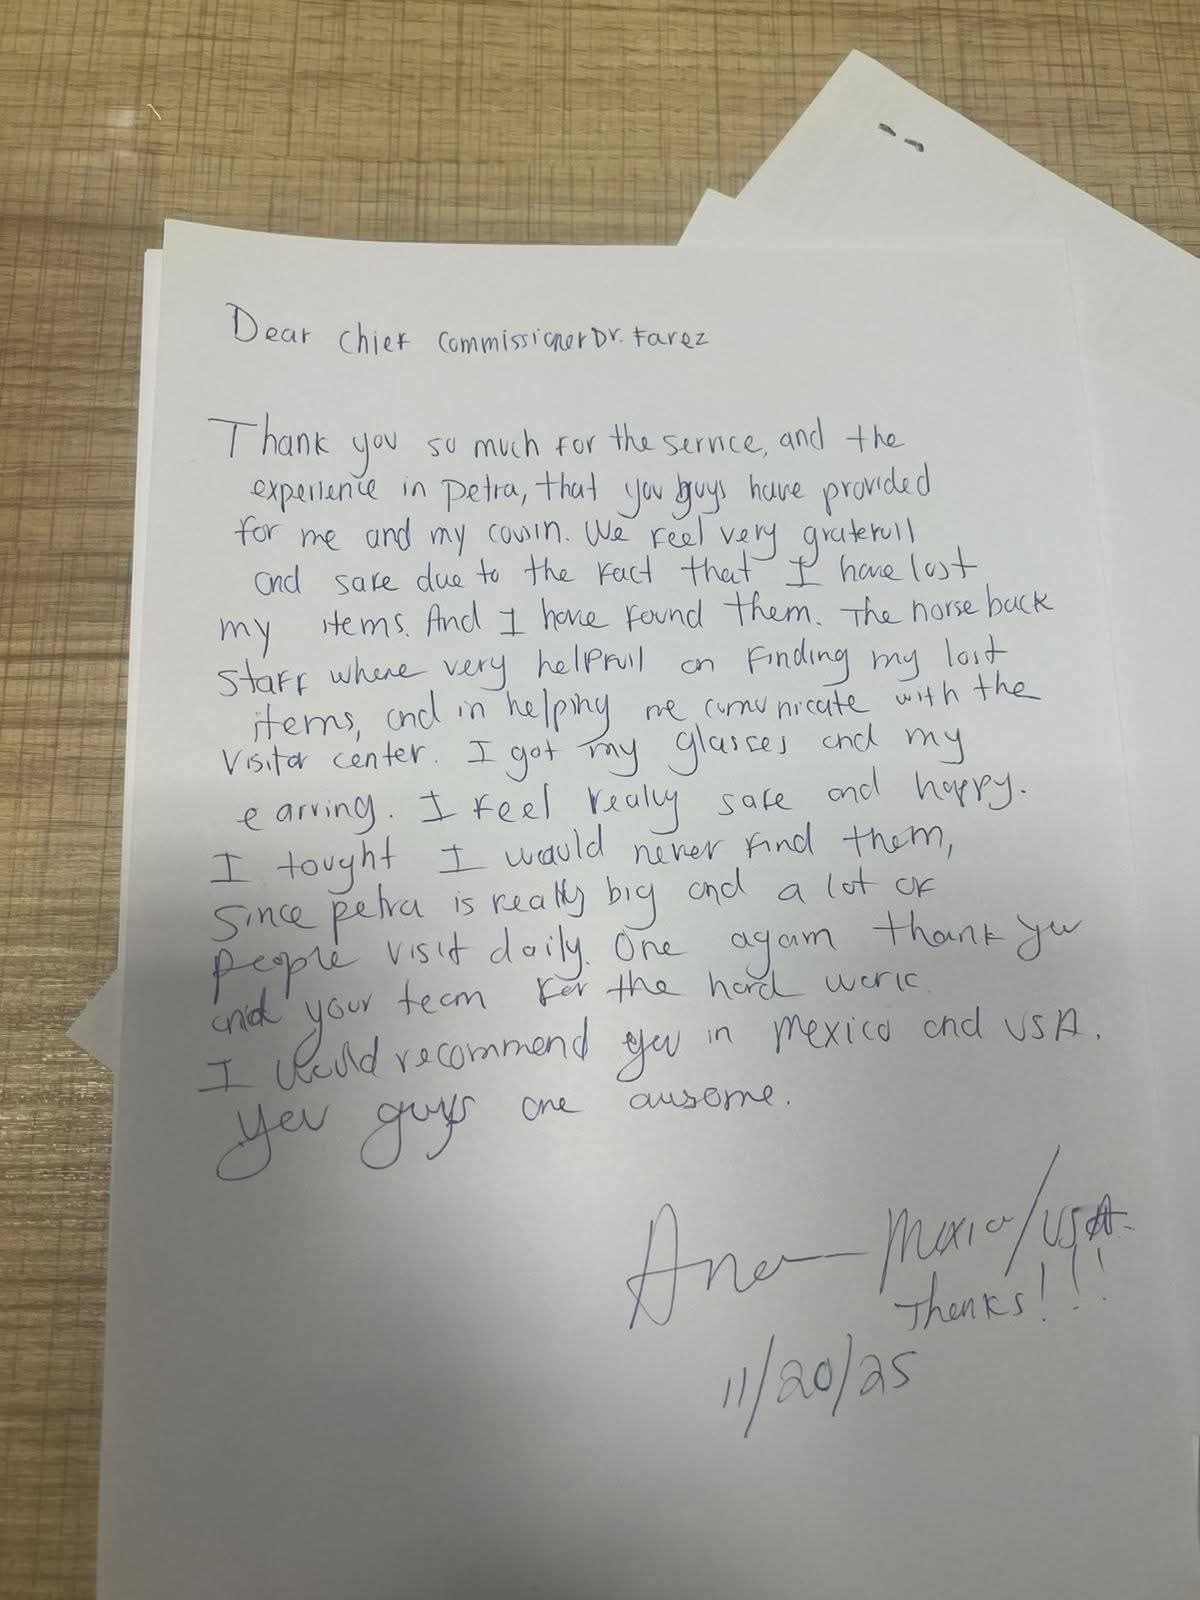 Dear Chief Commissioner Dr. Farez
Thank you so much for the service, and the
experience in petra, that you guys have provided
for me and my cousin. We feel very gratefull
and safe due to the fact that I have lost
my items. And I have found them. The horse back
staff where very helpfull on finding my lost
items, and in helping me comunicate with the
visitor center. I got my glasses and my
earring. I feel really safe and happy.
I tought I would never find them,
Since petra is really big and a lot of
people visit daily. One again thank you
and your team for the hard work.
I would recommend you in Mexico and USA.
you guys are awsome.
Ana — Mexico/USA.
Thanks!!!
11/20/25